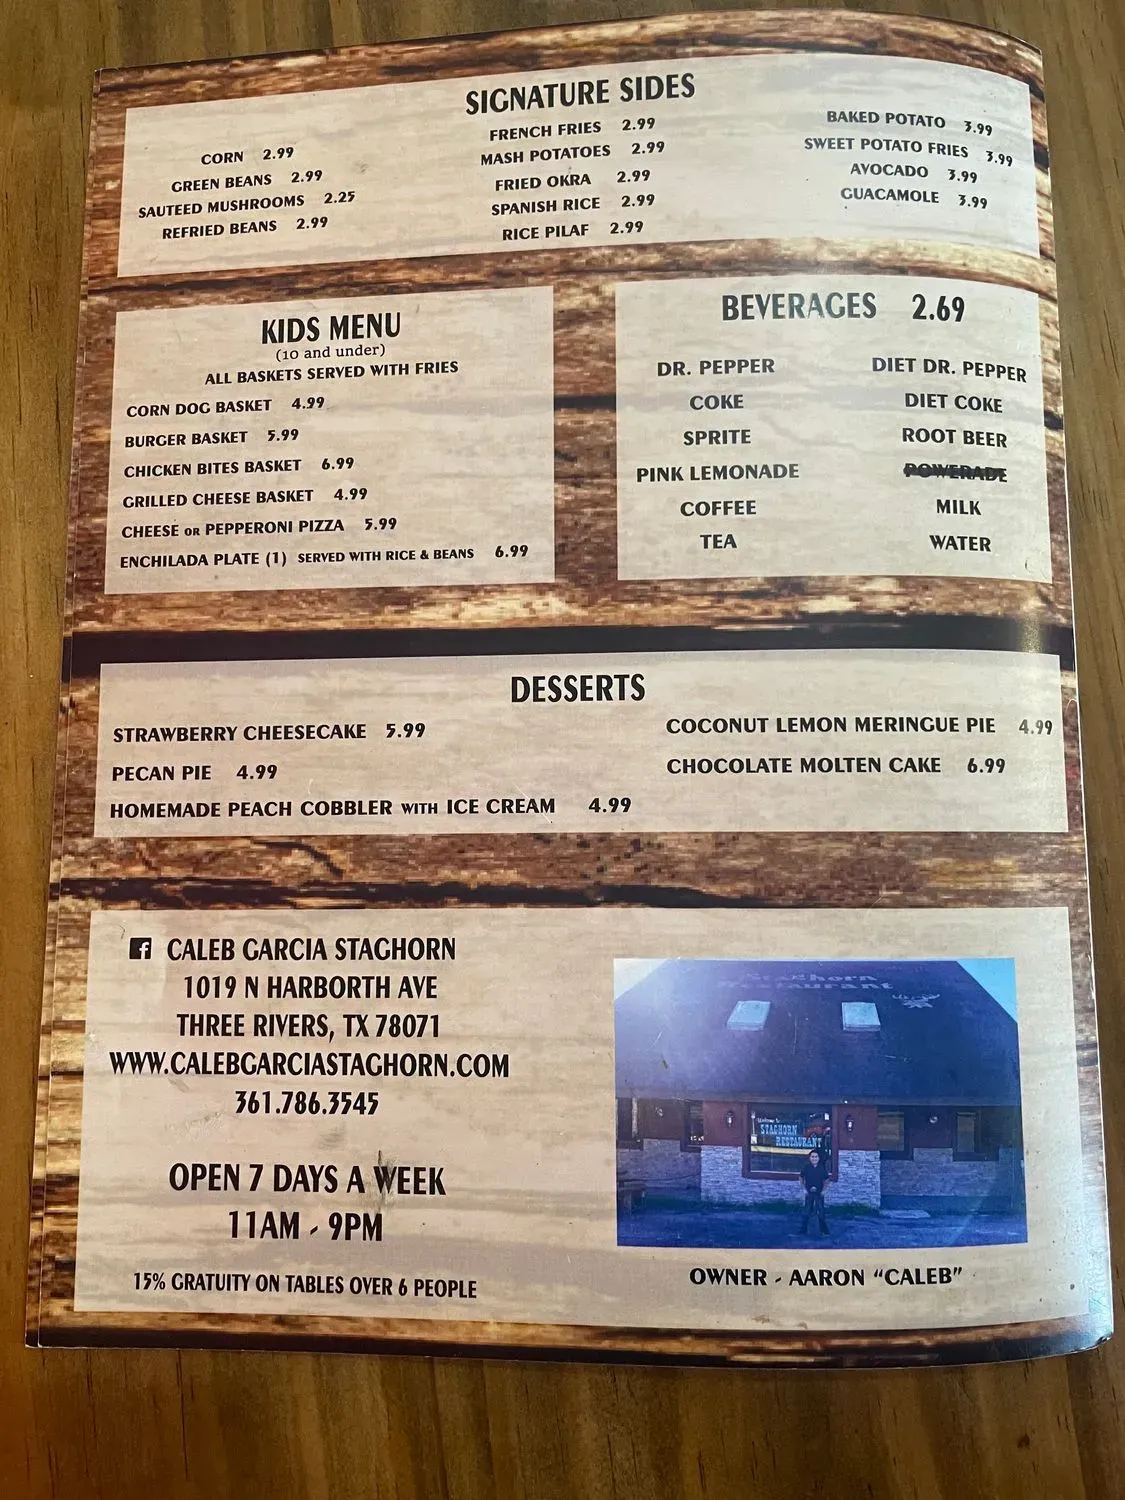 SIGNATURE SIDES
CORN 2.99
GREEN BEANS 2.99
SAUTEED MUSHROOMS 2.25
REFRIED BEANS 2.99
FRENCH FRIES 2.99
MASH POTATOES 2.99
FRIED OKRA 2.99
SPANISH RICE 2.99
RICE PILAF 2.99
BAKED POTATO 3.99
SWEET POTATO FRIES 3.99
AVOCADO 3.99
GUACAMOLE 3.99
KIDS MENU
(10 and under)
ALL BASKETS SERVED WITH FRIES
CORN DOG BASKET 4.99
BURGER BASKET 5.99
CHICKEN BITES BASKET 6.99
GRILLED CHEESE BASKET 4.99
CHEESE OR PEPPERONI PIZZA 5.99
ENCHILADA PLATE (1) SERVED WITH RICE & BEANS 6.99
BEVERAGES 2.69
DR. PEPPER
COKE
SPRITE
PINK LEMONADE
COFFEE
TEA
DIET DR. PEPPER
DIET COKE
ROOT BEER
POWERADE
MILK
WATER
DESSERTS
STRAWBERRY CHEESECAKE 5.99
PECAN PIE 4.99
HOMEMADE PEACH COBBLER WITH ICE CREAM 4.99
COCONUT LEMON MERINGUE PIE 4.99
CHOCOLATE MOLTEN CAKE 6.99
f CALEB GARCIA STAGHORN
1019 N HARBORTH AVE
THREE RIVERS, TX 78071
WWW.CALEBGARCIASTAGHORN.COM
361.786.3545
OPEN 7 DAYS A WEEK
11AM - 9PM
15% GRATUITY ON TABLES OVER 6 PEOPLE
Staghorn
Restaurant
Welcome To
STAGHORN
RESTAURANT
OWNER - AARON "CALEB"